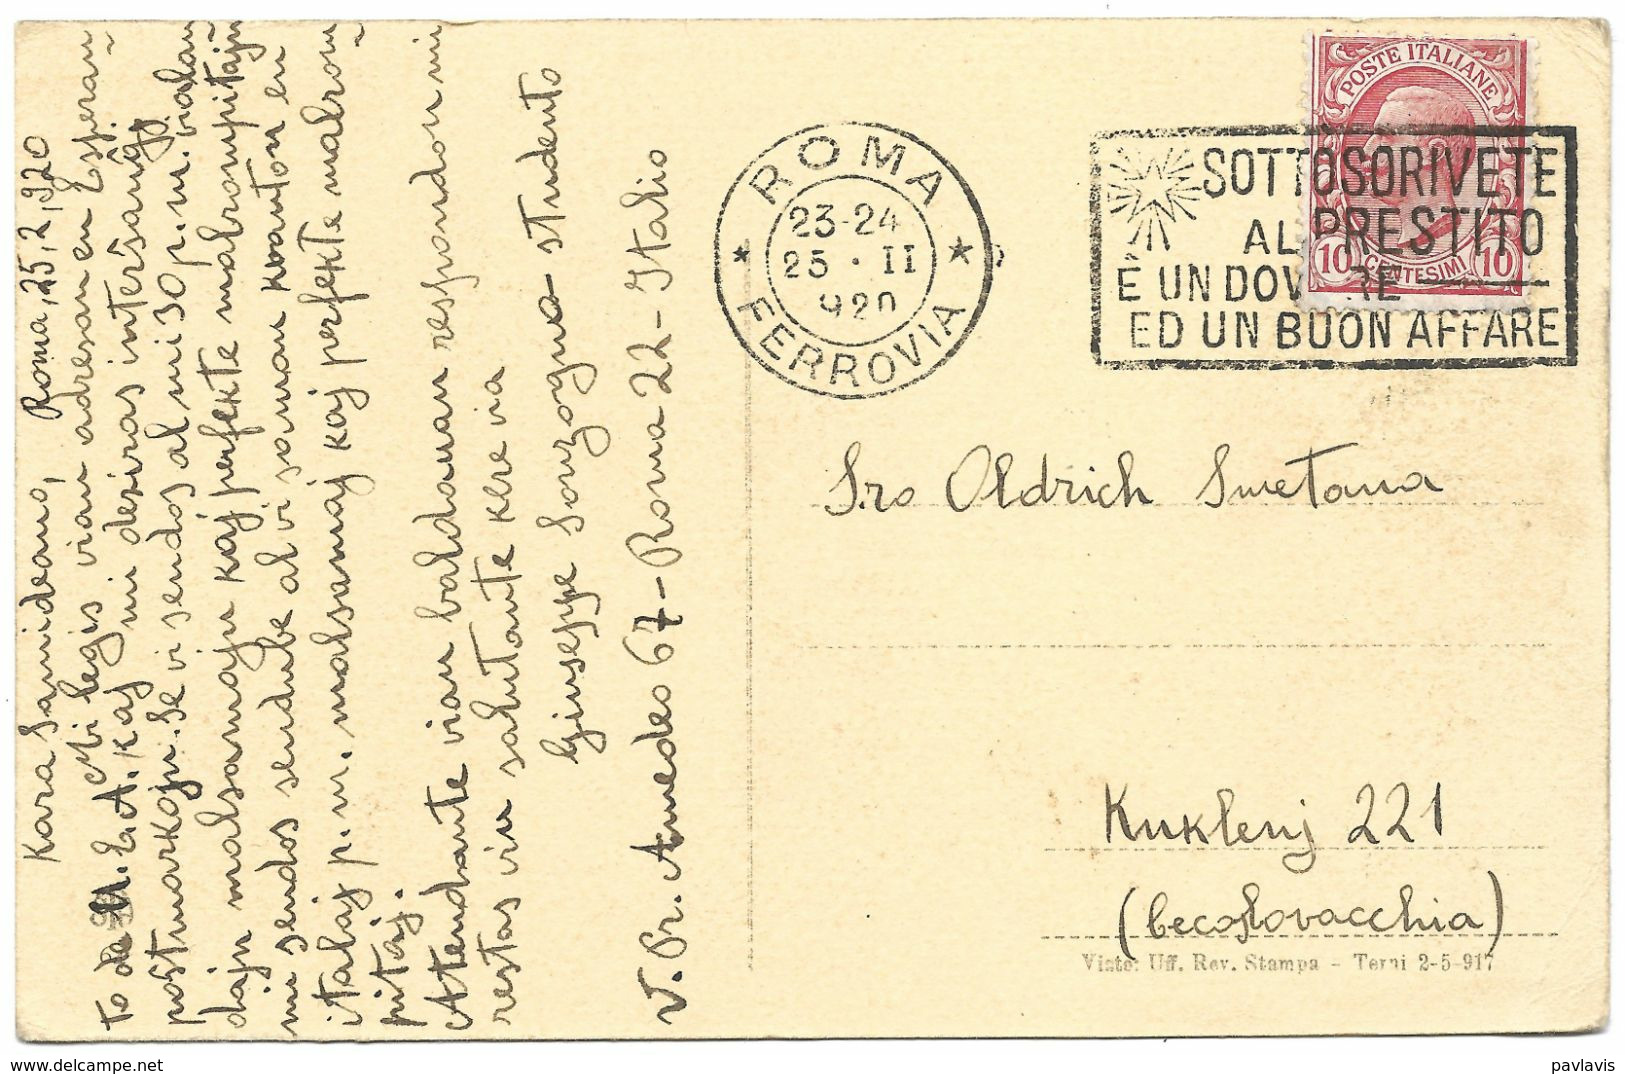 Roma, 25, 2, 920
Kara Samideano,
Mi legis vian adreson en Esperan-
to de U. E. A. kaj mi deziras interŝanĝi
postmarkojn. Se vi sendos al mi 30 p. m. vialan
dajn malsamajn kaj perfekte malrompitajn
mi sendos sendube al vi saman kvanton en
italaj p. m. malsamaj kaj perfekte malrom-
pitaj.
Atendante vian baldauan respondon mi
restas vin salutante kore via
Giuseppe Sonzogno - studento
V. Pr. Amedeo 67 - Roma 22 - Italio
ROMA
23-24
25 · II
920
FERROVIA
POSTE ITALIANE
10 CENTESIMI 10
SOTTOSCRIVETE
AL PRESTITO
È UN DOVERE
ED UN BUON AFFARE
S.ro Oldrich Smetana
Kuklenj 221
(Cecoslovacchia)
Visto: Uff. Rev. Stampa - Terni 2-5-917
delcampe.net
pavlavis